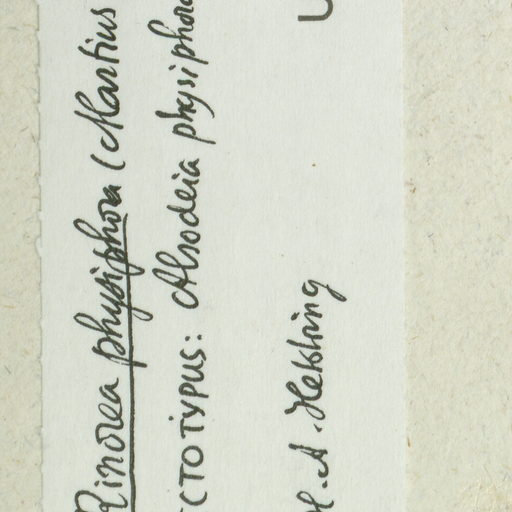 Rinorea physiphora (Martius
CTOTYPUS: Alsodeia physiphora
H. A. Hekking